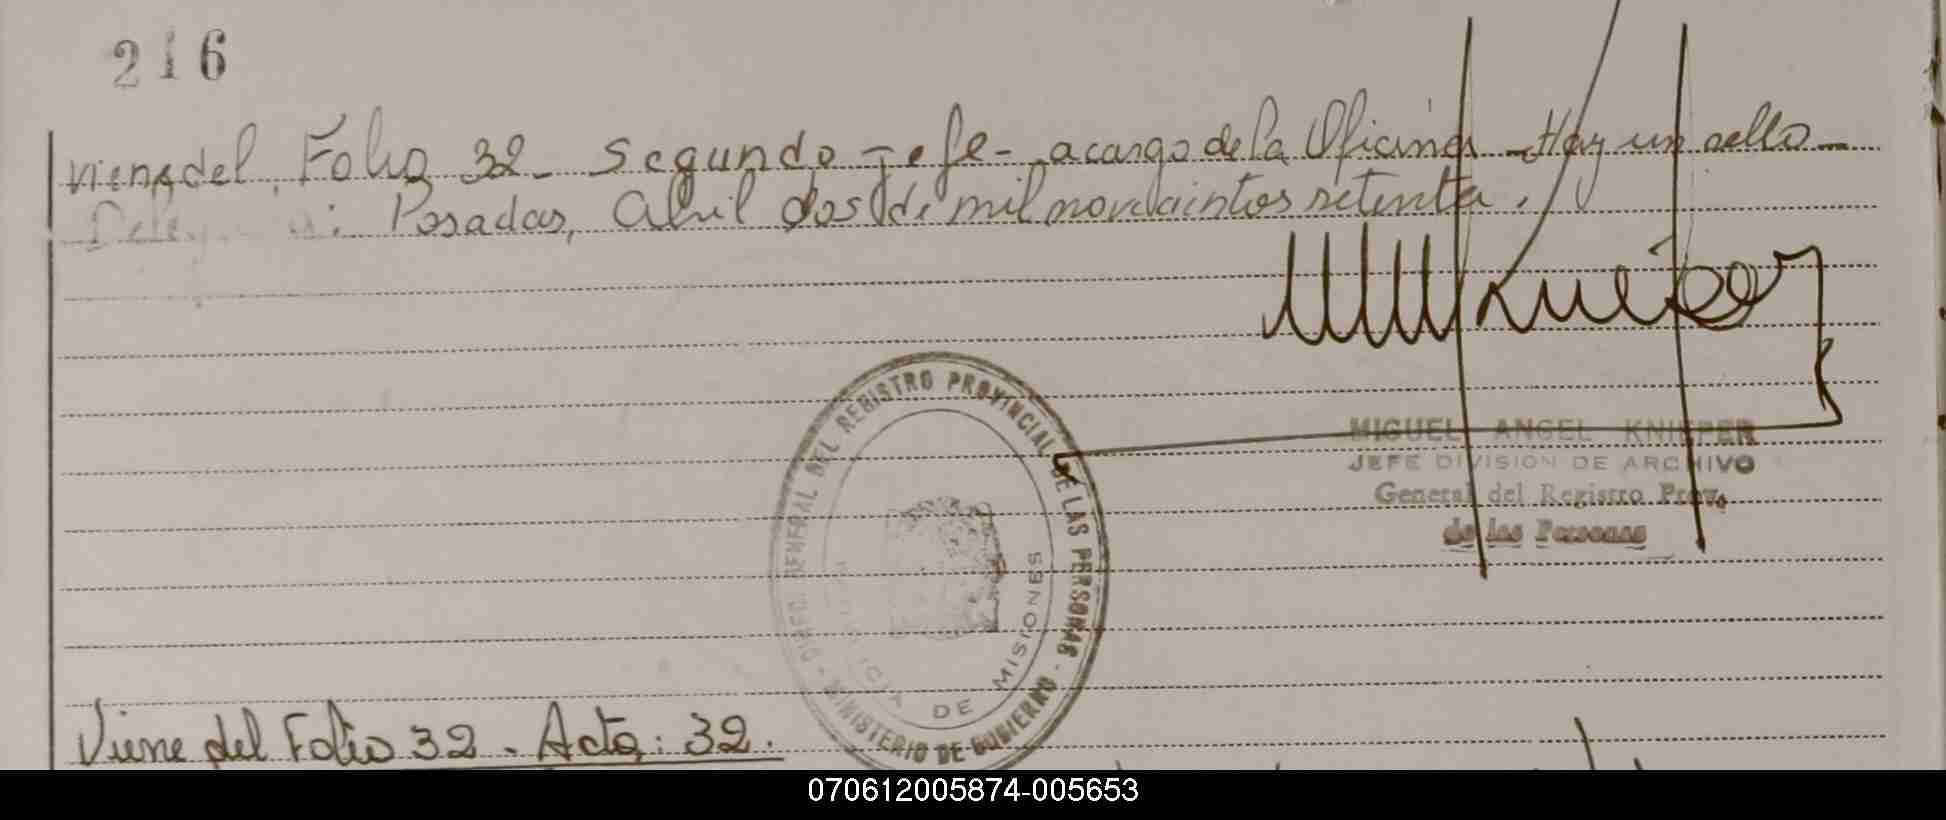 216
Viene del Folio 32 - Segundo Jefe - a cargo de la Oficina - Hay un sello -
Posadas, Abril dos de mil novecientos setenta.
MIGUEL ANGEL KNIEPER
JEFE DIVISION DE ARCHIVO
General del Registro Prov.
de las Personas
DIREC. GENERAL DEL REGISTRO PROVINCIAL DE LAS PERSONAS - MINISTERIO DE GOBIERNO -
DE MISIONES
Viene del Folio 32 - Acta: 32.
070612005874-005653